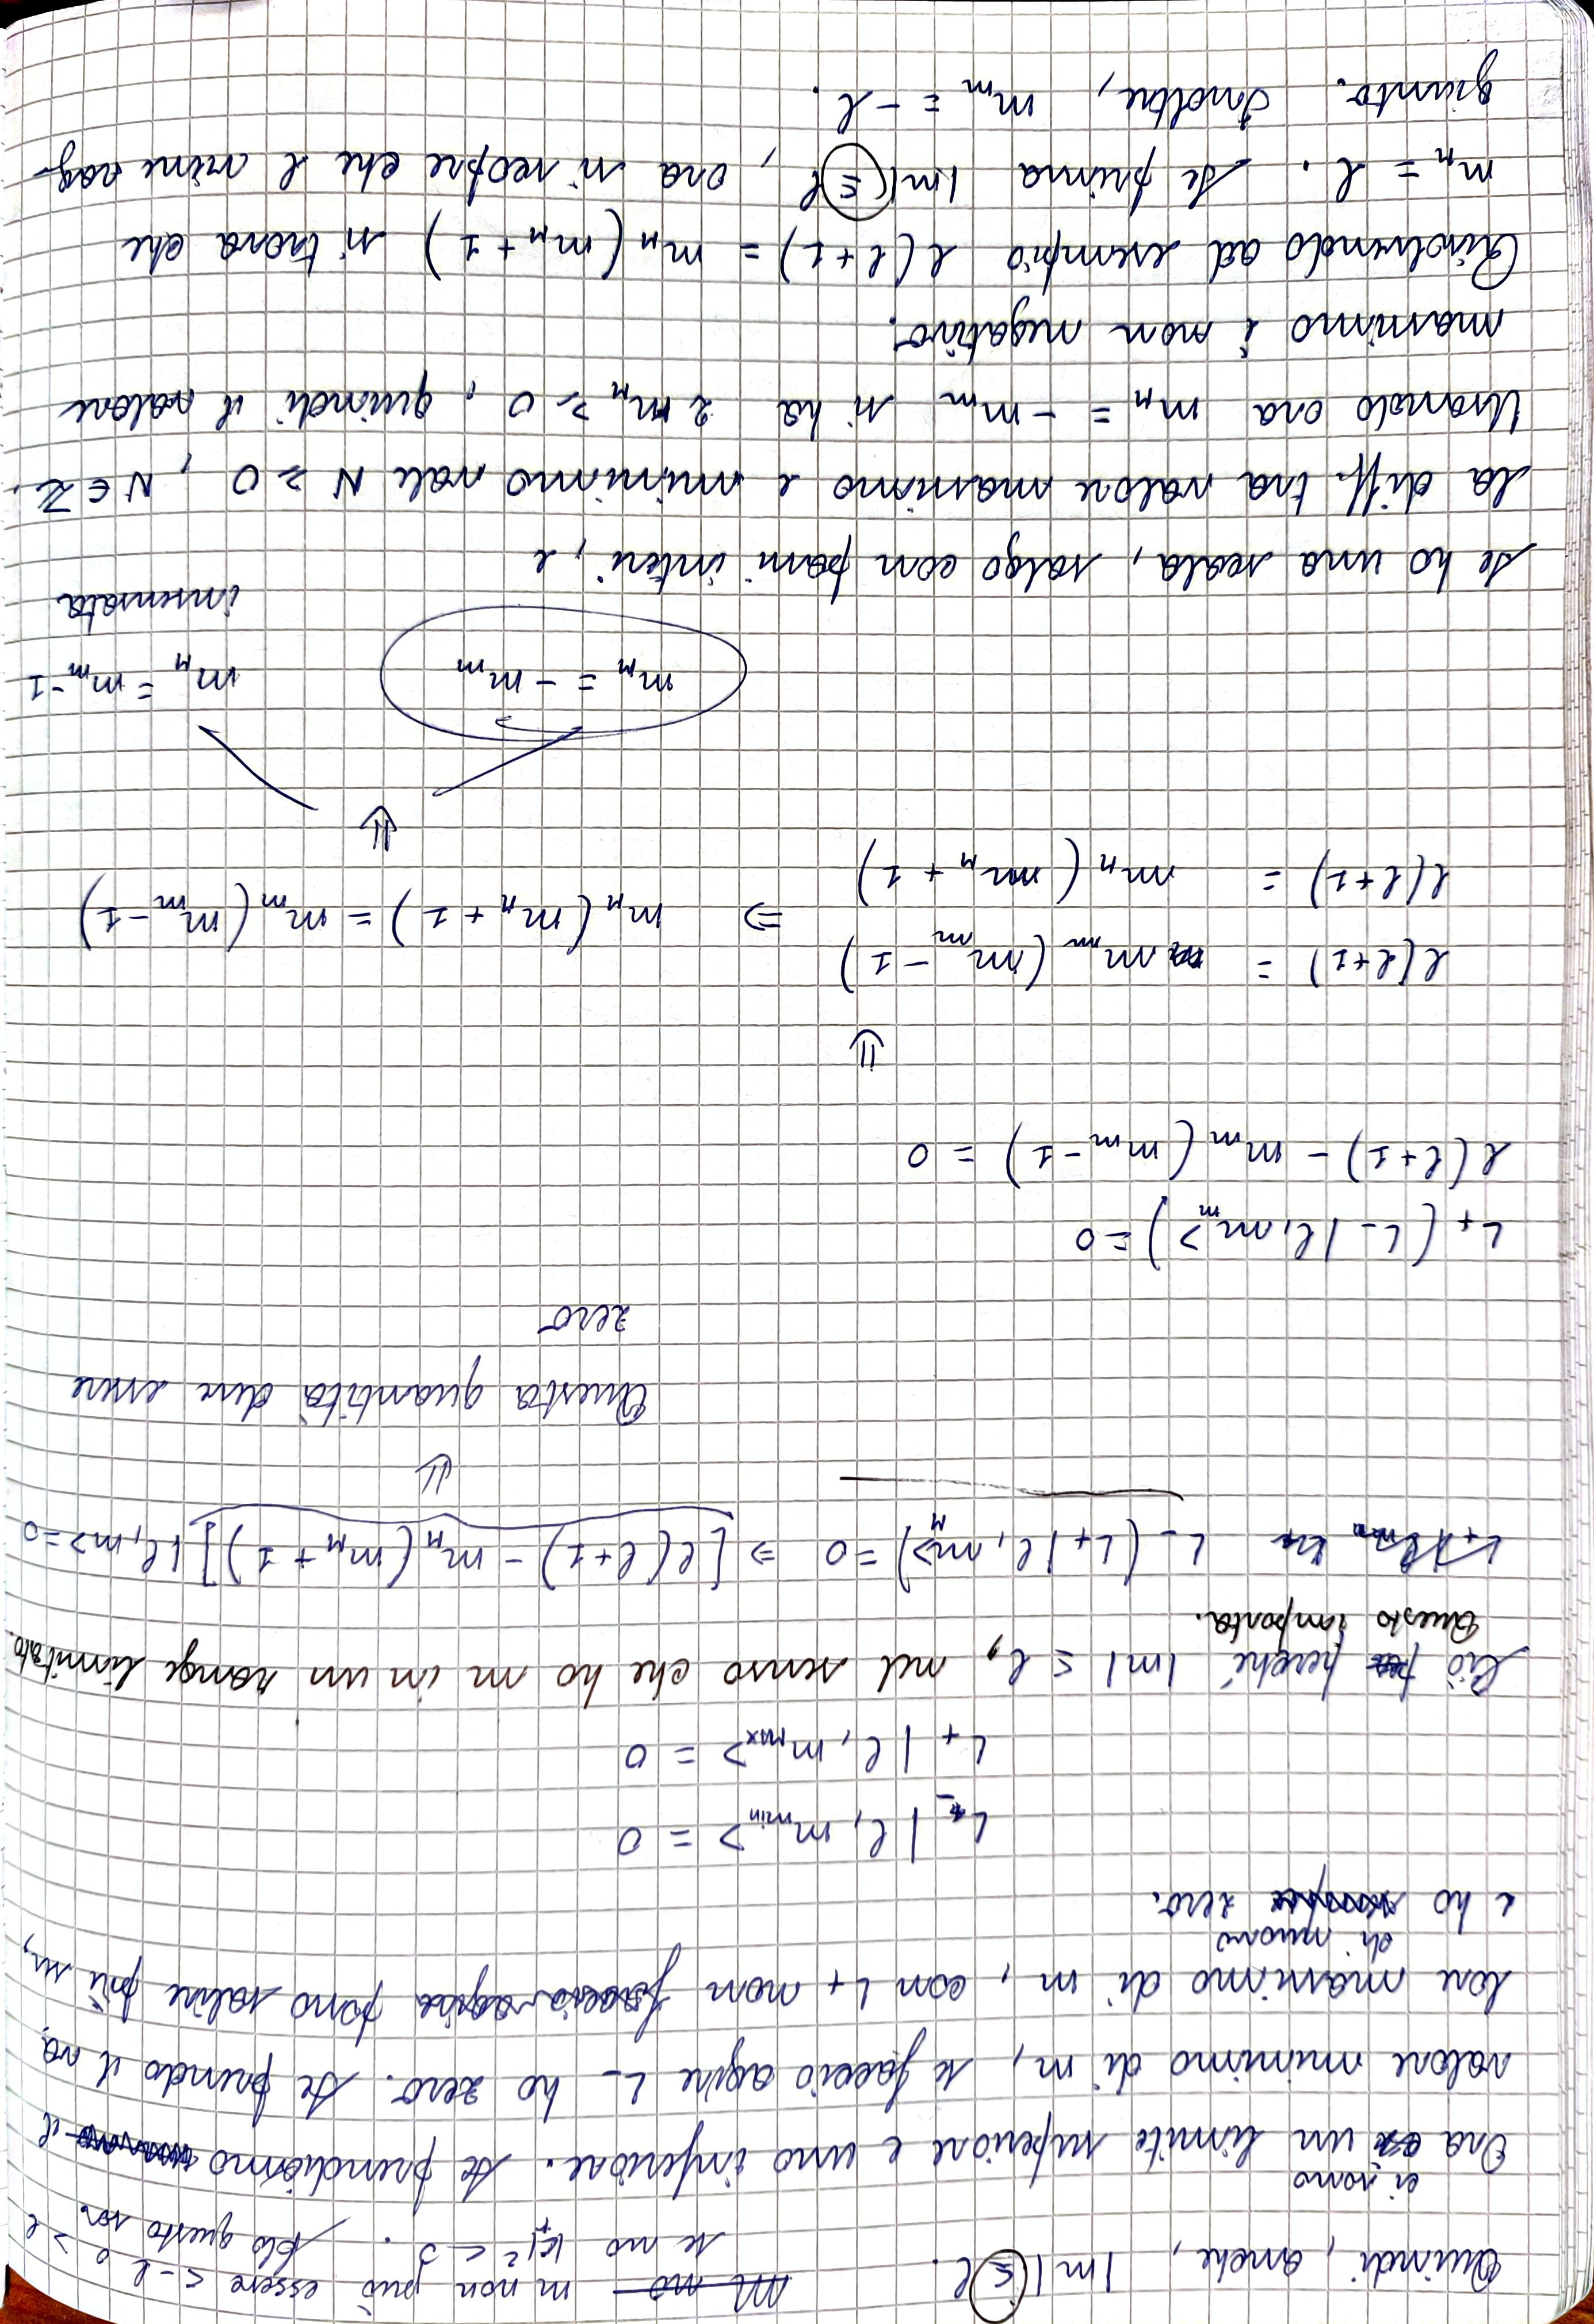 Quindi, anche, |m| ≤ l. m non può essere < -l o > l
se no |c₊|² < 0. Solo questo so.
Ora ci sono un limite superiore e uno inferiore. Se prendiamo il
valore minimo di m, se faccio agire L₋ ho zero. Se prendo il va
lore massimo di m, con L₊ non posso salire più su,
e ho di nuovo zero.
L₋ | l, m_min > = 0
L₊ | l, m_MAX > = 0
Ciò perché |m| ≤ l, nel senso che ho m in un range limitato.
Questo importa.
L₋ (L₊ | l, m_M >) = 0 ⇒ [l(l+1) - m_M (m_M + 1)] | l, m > = 0
⇓
Questa quantità deve essere
zero
L₊ (L₋ | l, m_m >) = 0
l(l+1) - m_m (m_m - 1) = 0
⇓
l(l+1) = m_m (m_m - 1)
l(l+1) = m_M (m_M + 1) ⇒ m_M (m_M + 1) = m_m (m_m - 1)
⇓
m_M = - m_m m_M = m_m - 1
insensata
Se ho una scala, salgo con passi interi, e
la diff. tra valore massimo e minimo vale N ≥ 0, N ∈ ℤ.
Usando ora m_M = - m_m si ha 2 m_M ≥ 0, quindi il valore
massimo è non negativo.
Risolvendo ad esempio l(l+1) = m_M (m_M + 1) si trova che
m_M = l. Se prima |m| ≤ l, ora si scopre che l viene rag-
giunto. Inoltre, m_m = - l.